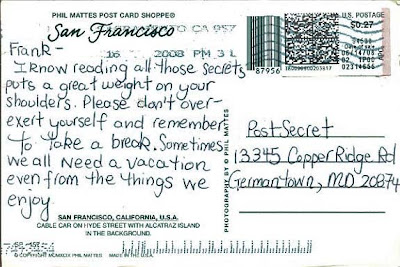 PHIL MATTES POST CARD SHOPPE®
San Francisco
CA 957
16 2008 PM 3 L
U.S. POSTAGE
$0.27
87956
Frank-
I know reading all those secrets
puts a great weight on your
shoulders. Please don't over-
exert yourself and remember
to take a break. Sometimes
we all need a vacation
even from the things we
enjoy.
PostSecret
13345 Copper Ridge Rd
Germantown, MD 20874
PHOTOGRAPHY BY © PHIL MATTES
SAN FRANCISCO, CALIFORNIA, U.S.A.
CABLE CAR ON HYDE STREET WITH ALCATRAZ ISLAND
IN THE BACKGROUND.
© COPYRIGHT MCMXCIX PHIL MATTES MADE IN THE U.S.A.